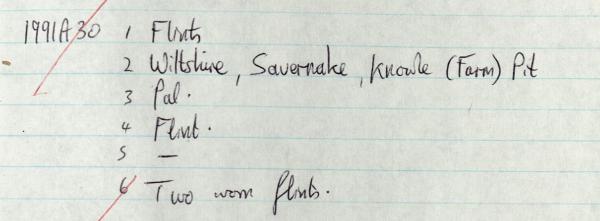 1991A30 1 Flints
2 Wiltshire, Savernake, Knowle (Farm) Pit
3 Pal.
4 Flint.
5 —
6 Two worn flints.